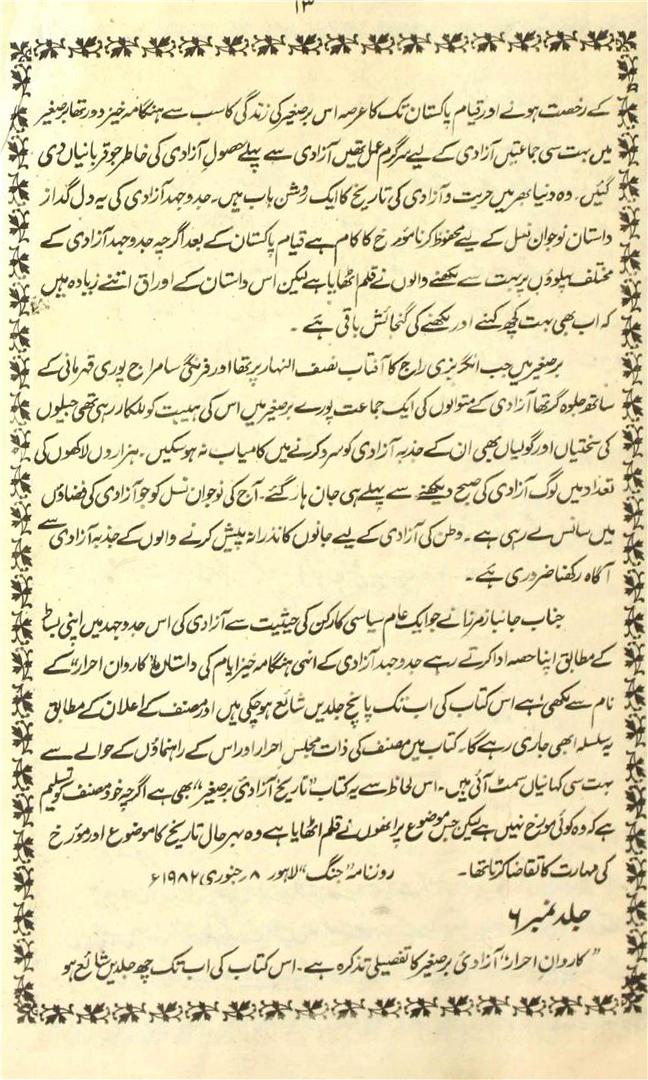 ۱۳
کے رخصت ہونے اور قیام پاکستان تک کا عرصہ اس برصغیر کی زندگی کا سب سے ہنگامہ خیز دور تھا برصغیر
میں بہت سی جماعتیں آزادی کے لیے سرگرم عمل تھیں آزادی سے پہلے حصولِ آزادی کی خاطر جو قربانیاں دی
گئیں۔ وہ دنیا بھر میں حریت و آزادی کی تاریخ کا ایک روشن باب ہیں۔ جدوجہد آزادی کی یہ دل گداز
داستان نوجوان نسل کے لیے محفوظ کرنا مؤرخ کا کام ہے قیام پاکستان کے بعد اگرچہ جدوجہد آزادی کے
مختلف پہلوؤں پر بہت سے لکھنے والوں نے قلم اٹھایا ہے لیکن اس داستان کے اوراق اتنے زیادہ ہیں
کہ اب بھی بہت کچھ کہنے اور لکھنے کی گنجائش باقی ہے ۔
برصغیر میں جب انگریزی راج کا آفتاب نصف النہار پر تھا اور فرنگی سامراج پوری قہرمانی کے
ساتھ جلوہ گر تھا آزادی کے متوالوں کی ایک جماعت پورے برصغیر میں اس کی ہیبت کو للکار رہی تھی جیلوں
کی سختیاں اور گولیاں بھی ان کے جذبہ آزادی کو سرد کرنے میں کامیاب نہ ہو سکیں۔ ہزاروں لاکھوں کی
تعداد میں لوگ آزادی کی صبح دیکھنے سے پہلے ہی جان ہار گئے۔ آج کی نوجوان نسل کو جو آزادی کی فضاؤں
میں سانس لے رہی ہے ۔ وطن کی آزادی کے لیے جانوں کا نذرانہ پیش کرنے والوں کے جذبہ آزادی سے
آگاہ رکھنا ضروری ہے ۔
جناب جانباز مرزا نے جو ایک عام سیاسی کارکن کی حیثیت سے آزادی کی اس جدوجہد میں اپنی بساط
کے مطابق اپنا حصہ ادا کرتے رہے جدوجہد آزادی کے انہی ہنگامہ خیز ایام کی داستان "کاروانِ احرار" کے
نام سے لکھی ہے اس کتاب کی اب تک پانچ جلدیں شائع ہو چکی ہیں اور مصنف کے اعلان کے مطابق
یہ سلسلہ ابھی جاری رہے گا۔ کتاب میں مصنف کی ذات مجلس احرار اور اس کے راہنماؤں کے حوالے سے
بہت سی کہانیاں سمٹ آئی ہیں۔ اس لحاظ سے یہ کتاب "تاریخ آزادیٔ برصغیر" بھی ہے اگرچہ خود مصنف کو تسلیم
ہے کہ وہ کوئی مؤرخ نہیں ہے لیکن جس موضوع پر انھوں نے قلم اٹھایا ہے وہ بہر حال تاریخ کا موضوع اور مؤرخ
کی مہارت کا تقاضا کرتا تھا۔ روزنامہ "جنگ" لاہور ۸ جنوری ۱۹۸۲ء
جلد نمبر ۶
"کاروانِ احرار" آزادیٔ برصغیر کا تفصیلی تذکرہ ہے۔ اس کتاب کی اب تک چھ جلدیں شائع ہو